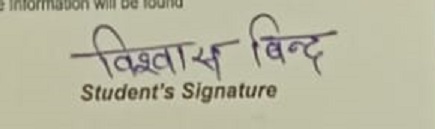 e information will be found
विश्वास बिन्द
Student's Signature